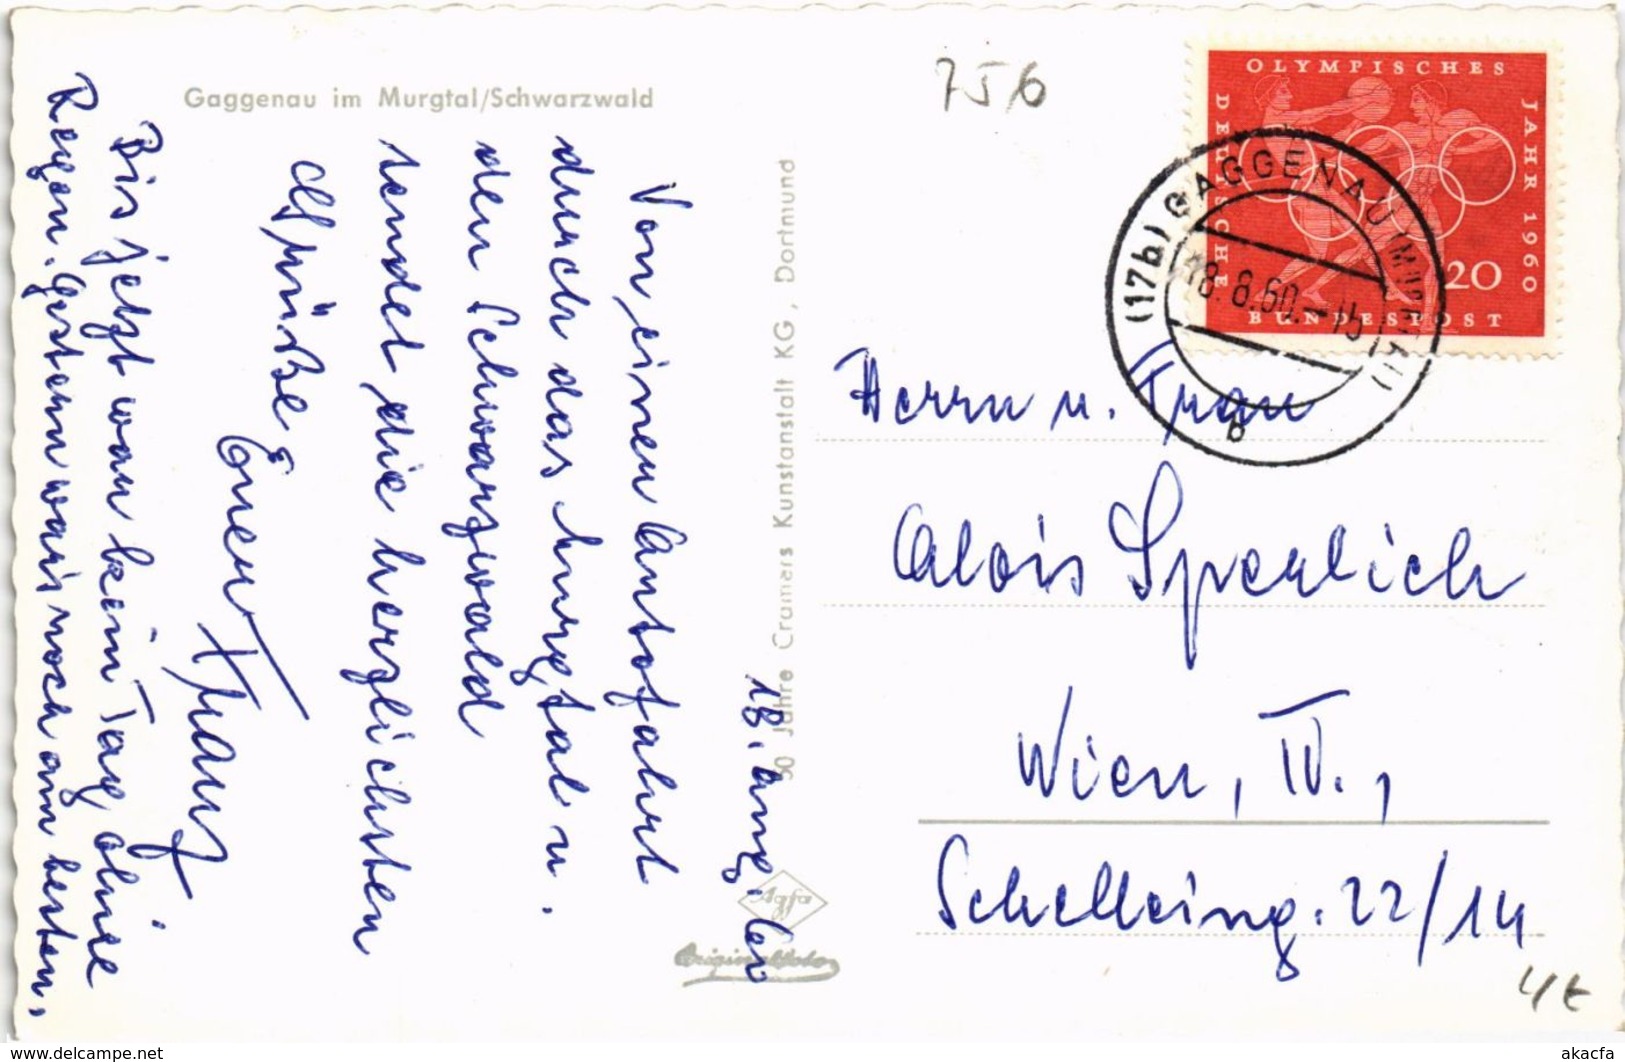 Gaggenau im Murgtal/Schwarzwald
756
OLYMPISCHES
JAHR 1960
DEUTSCHE
BUNDESPOST
20
(17b) GAGGENAU (MURGTAL)
18.8.60.-15
b
50 Jahre Cramers Kunstanstalt KG, Dortmund
Agfa
Originalfoto
18. Aug. 60
Von einer Autofahrt
durch das Murgtal u.
den Schwarzwald
sendet die herzlichsten
Grüße
Euer Franz
Bis jetzt war kein Tag ohne
Regen. Gestern war's noch am besten.
Herrn u. Frau
Alois Sperlich
Wien, IV.,
Schelleing. 22/14
4 €
www.delcampe.net
akacfa